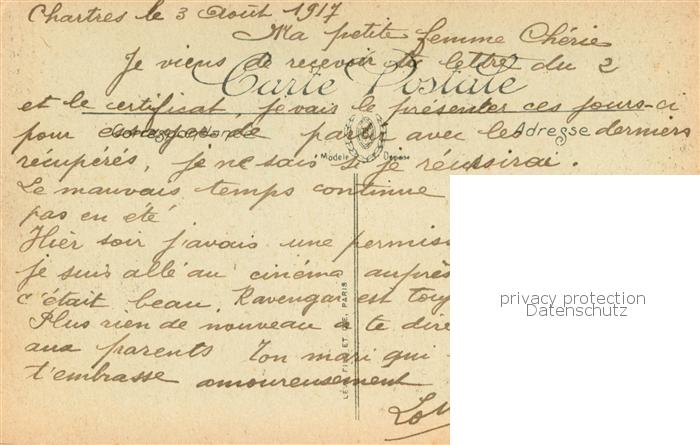 Chartres le 3 Août 1917
Ma petite femme Chérie
Je viens de recevoir ta lettre du 2
Carte Postale
et le certificat, je vais le présenter ces jours-ci
pour essayer de partir avec les derniers
Correspondance
Adresse
récupérés, je ne sais si je réussirai.
Modèle Déposé
Le mauvais temps continue
pas en été
Hier soir j'avais une permiss
je suis allé au cinéma auprès
c'était beau, Ravengar est touj
Plus rien de nouveau à te dire
aux parents Ton mari qui
t'embrasse amoureusement
PARIS
privacy protection
Datenschutz